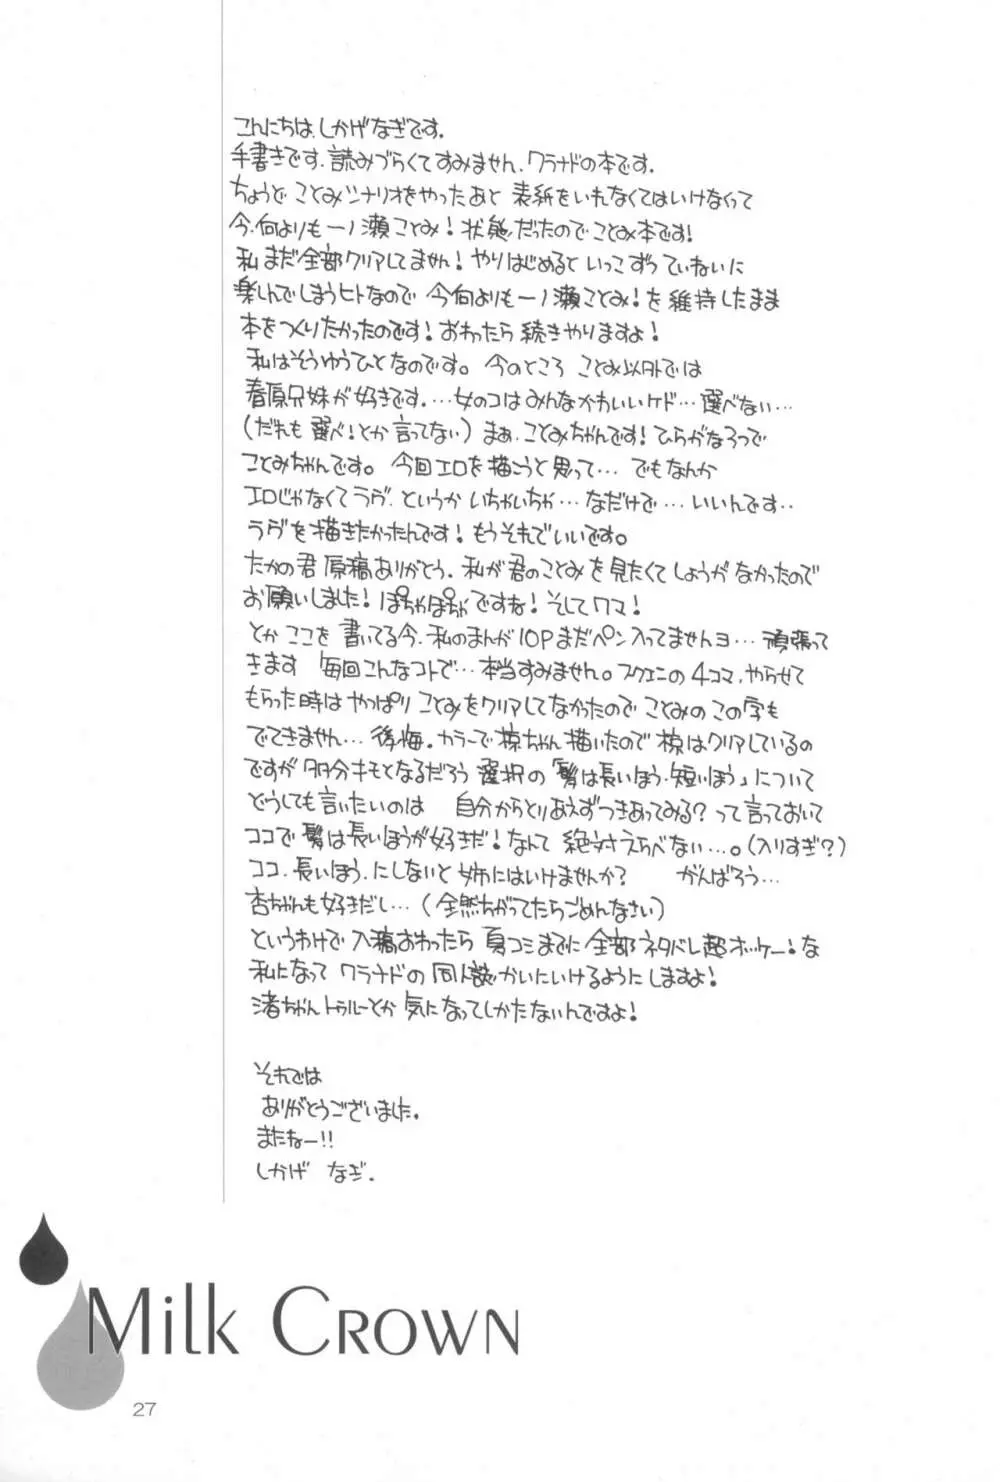 こんにちは、しかげなぎです.
手書きです.読みづらくてすみません.クラナドの本です.
ちょうど ことみシナリオをやったあと 表紙をいれなくてはいけなくって
今.何よりも一ノ瀬ことみ!状態だったので ことみ本です!
私 まだ全部クリアしてません! やりはじめると いっこずつ ていねいに
楽しんでしまうヒトなので 今何よりも一ノ瀬ことみ!を維持したまま
本をつくりたかったのです! おわったら続きやりますよ!
私はそうゆうひとなのです。 今のところ ことみ以外では
春原兄妹が好きです.…女のコはみんなかわいいケド…選べない…
(だれも 選べ!とか言ってない) まぁ.ことみちゃんです! ひらがなろつで
ことみちゃんです。 今回エロを描こうと思って… でもなんか
エロじゃなくてラヴ.というか いちゃいちゃ…なだけで…いいんです..
ラヴを描きたかったんです! もうそれでいいです。
たかの君 原稿ありがとう.私が君のことみを見たくてしょうがなかったので
お願いしました! ぽちゃぽちゃですね! そしてクマ!
とか ここを 書いてる今.私のまんが10Pまだペン入ってませんヨ… 頑張って
きます 毎回こんなコトで…本当すみません。スクエニの4コマ.やらせて
もらった時は やっぱり ことみをクリアしてなかったので ことみの この字も
でてきません… 後悔.カラーで椋ちゃん描いたので 椋はクリアしているの
ですが 多分キモとなるだろう 選択の「髪は長いほう・短いほう」について
どうしても言いたいのは 自分からとりあえずつきあってみる? って言っておいて
ココで 髪は長いほうが好きだ! なんて 絶対えらべない…。(入りすぎ?)
ココ.長いほう.にしないと 姉にはいけませんか? がんばろう…
杏ちゃんも好きだし…(全然ちがってたらごめんなさい)
というわけで 入稿おわったら 夏コミまでに 全部ネタバレ超オッケー!な
私になって クラナドの 同人誌かいにいけるようにしますよ!
渚ちゃん トゥルーとか 気になってしかたないんですよ!
それでは
ありがとうございました.
またねー!!
しかげ なぎ.
Milk Crown
27